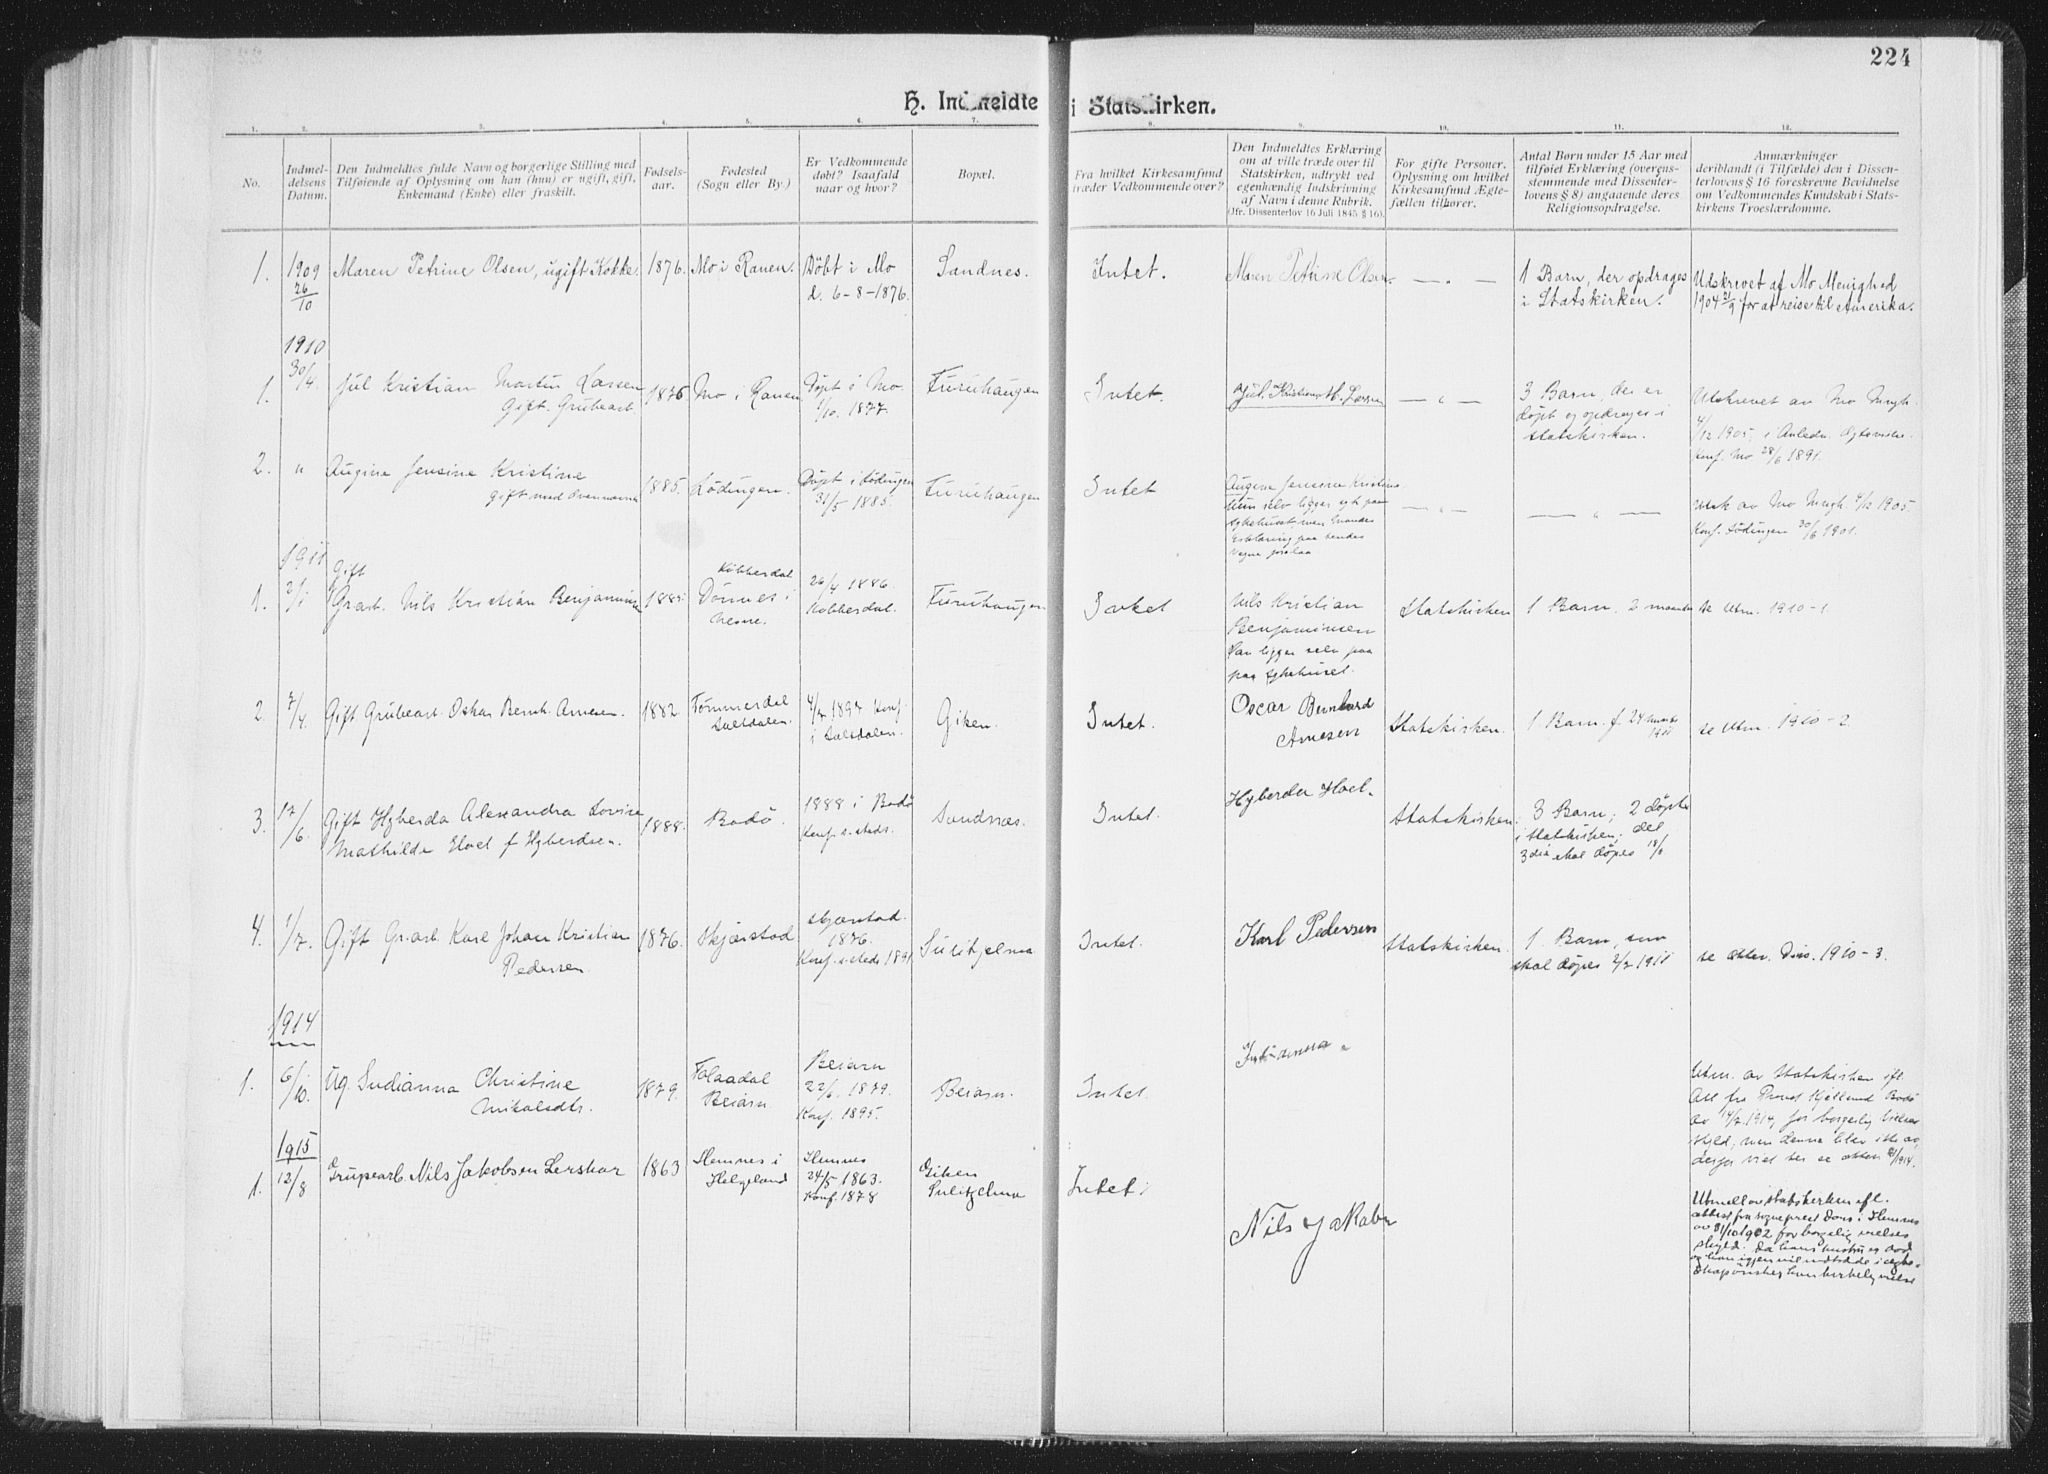 224
H. Indmeldte i Statskirken.
1. 2. 3. 4. 5. 6. 7. 8. 9. 10. 11. 12.
No.
Indmel-
delsens
Datum.
Den Indmeldtes fulde Navn og borgerlige Stilling med
Tilføiende af Oplysning om han (hun) er ugift, gift,
Enkemand (Enke) eller fraskilt.
Fødsels-
aar.
Fødested
(Sogn eller By.)
Er Vedkommende
døbt? Isaafald
naar og hvor?
Bopæl.
Fra hvilket Kirkesamfund
træder Vedkommende over?
Den Indmeldtes Erklæring
om at ville træde over til
Statskirken, udtrykt ved
egenhændig Indskrivning
af Navn i denne Rubrik.
(Jfr. Dissenterlov 16 Juli 1845 § 16).
For gifte Personer.
Oplysning om hvilket
Kirkesamfund Ægte-
fællen tilhører.
Antal Børn under 15 Aar med
tilføiet Erklæring (overens-
stemmende med Dissenter-
lovens § 8) angaaende deres
Religionsopdragelse.
Anmærkninger
deriblandt (i Tilfælde) den i Dissen-
terlovens § 16 foreskrevne Bevidnelse
om Vedkommendes Kundskab i Stats-
kirkens Troeslærdomme.
1. 1909
26/10
Maren Petrine Olsen, ugift Kokke.
1876.
Mo i Ranen.
Døbt i Mo
d. 6-8-1876.
Sandnes.
Intet.
Maren Petrine Olsen.
— " —
1 Barn, der opdrages
i Statskirken.
Udskrevet af Mo Menighed
1904 21/9 for at reise til Amerika.
1910
1. 30/4.
Jul Kristian Martin Larsen
Gift. Grubearb.
1876
Mo i Ranen
Døpt i Mo
1/10. 1877.
Furuhaugen
Intet.
Jul. Kristian M. Larsen
— " —
3 Barn, der er
døpt og opdrages i
Statskirken.
Utskrevet av Mo Mngh.
4/12 1905, i Anledn.
Konf. Mo 28/6 1891.
2. "
Augine Jensine Kristine
gift med ovennævnte
1885.
Lödingen.
Døpt i Lödingen
31/5 1885.
Furuhaugen
Intet
Augine Jensine Kristine
Hun selv ligger syk paa
Sykehuset men Mandes
Erklæring paa hendes
Vegne forelaa
— " —
— " —
utsk av Mo Mngh. 4/12 1905.
Konf. Lödingen 30/6 1901.
1911
1. 2/1
Gift
Gr.arb. Nils Kristian Benjaminsen
1885
Kobberdal
Dönnes i
Nesne.
26/4 1886.
Kobberdal.
Furuhaugen
Intet
Nils Kristian
Benjaminsen
Han ligger selv paa
paa Sykehuset.
Statskirken
1 Barn. 2 maaneder
se Utm. 1910-1.
2. 7/4
Gift Grubearb. Oskar Bernh. Arnesen.
1882
Tømmerdal
Saltdalen.
4/7 1897 Konf.
i Saltdalen.
Giken.
Intet.
Oscar Bernhard
Arnesen
Statskirken.
1 Barn. f. 24
1911
se Utm. 1910-2.
3. 17/6.
Gift Hyberda Alexandra Lovise
Mathilde Hoel f Hyberdsen.
1888.
Bodö.
1888 i Bodö
Konf. s. steds.
Sandnæs.
Intet.
Hyberda Hoel.
Statskirken.
3 Barn; 2 døpte
i Statskirken; det
3die skal døpes 18/6
4. 1/7.
Gift Gr.arb. Karl Johan Kristian
Pedersen.
1876.
Skjærstad
Skjærstad.
1876.
Konf. s. steds 1891.
Sulitjelma
Intet.
Karl Pedersen
Statskirken.
1 Barn, som
skal døpes 2/7 1911
se Utm. Diss. 1910-3.
1914
1. 6/10.
Ug. Indianna Christine
Nikolsdtr.
1879.
Tollaadal
Beiarn
Beiarn
22/6. 1879.
Konf. 1895.
Beiarn.
Intet.
Indianna
Utm. av Statskirken ifl.
Att fra Provst Kjellund Bodö
av 14/7 1914, for borgerlig Vielses
Skyld; men denne blev ikke av,
1915
1. 12/8
Grupearb. Nils Jakobsen Lerskar
1863
Hemnes i
Helgeland
Hemnes
24/5 1863.
Konf. 1878
Giken
Sulitjelma
Intet
Nils Jakobs
Utmeldt av statskirken ifl.
attest fra sogneprest Dons i Hemnes
av 31/10 1902 for borgelig vielses
skyld. Da hans hustru er död
og han igjen vil indtræde i ægte-
skap önsker han kirkelig vielse